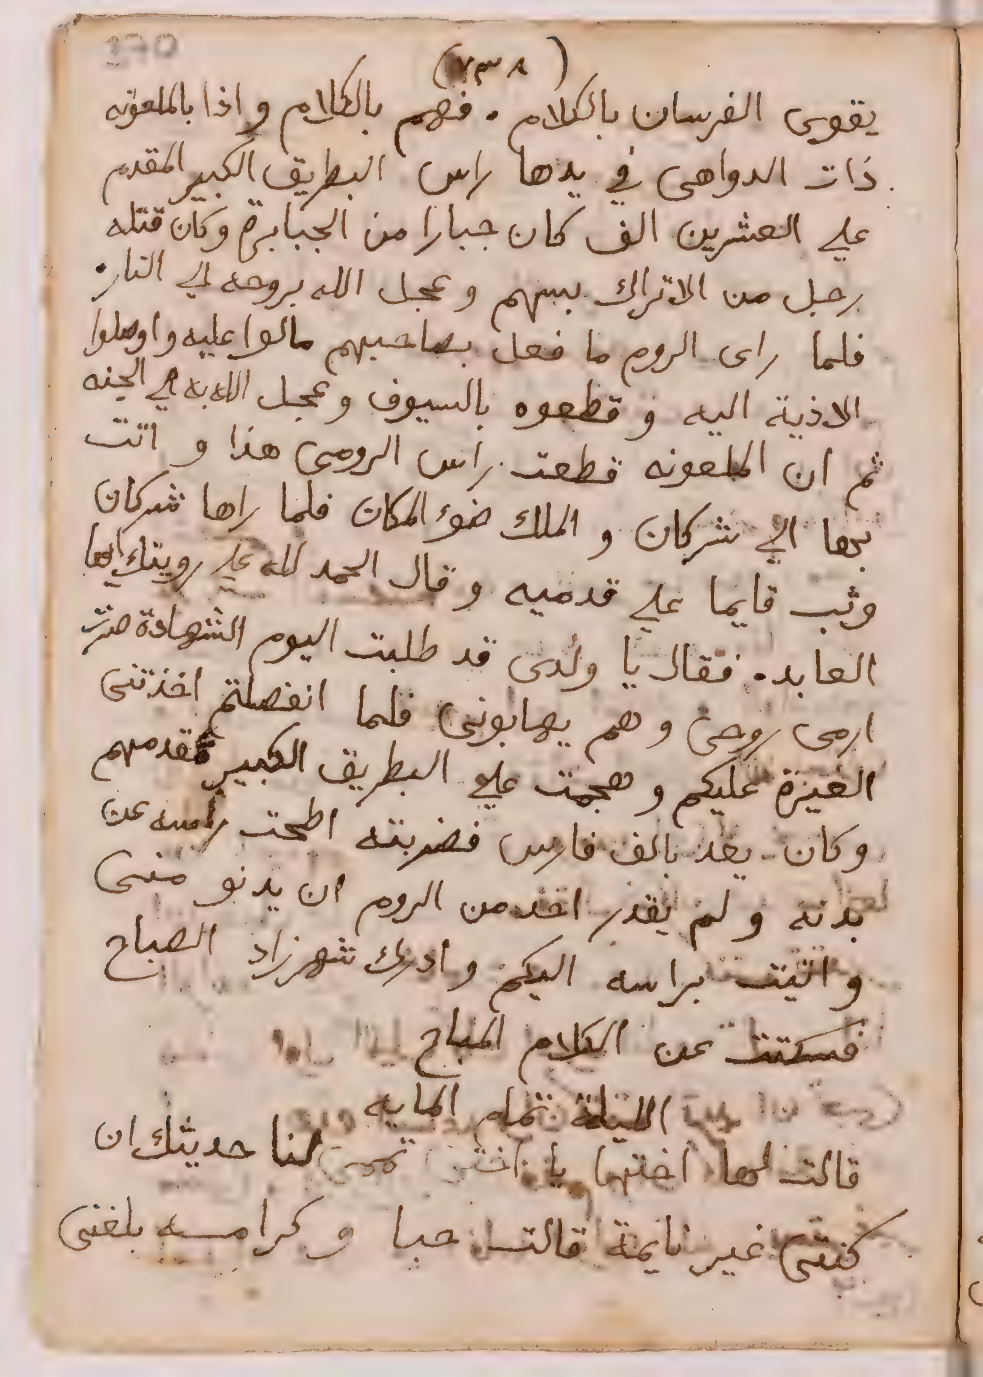 270
(٧٣٨)
يقوى الفرسان بالكلام . فهم بالكلام واذا بالملعونه
ذات الدواهى في يدها راس البطريق الكبير المقدم
علي العشرين الف كان جبارا من الجبابرة وكان قتله
رجل من الاتراك بسهم وعجل الله بروحه الي النار.
فلما راى الروم ما فعل بصاحبهم مالوا عليه واوصلوا
الاذية اليه و قطعوه بالسيوف وعجل الله به الي الجنه
ثم ان الملعونه قطعت راس الرومى هذا و اتت
بها الي شركان و الملك ضوء المكان فلما راها شركان
وثب قايما علي قدميه وقال الحمد لله علي رويتك ايها
العابد. فقال يا ولدى قد طلبت اليوم الشهادة صرت
ارمى روحى وهم يهابونى فلما انفصلتم اخذتنى
الغيرة عليكم و هجمت علي البطريق الكبير مقدمهم
وكان يعد بالف فارس فضربته اطحت راسه عن
بدنه ولم يقدر احد من الروم ان يدنو منى
و اتيت براسه اليكم وادرك شهرزاد الصباح
فسكتت عن الكلام المباح
الليلة تمام المايه
قالت لها اختها يا اختى تممى لنا حديثك ان
كنتى غير نايمة قالت حبا وكرامه بلغنى